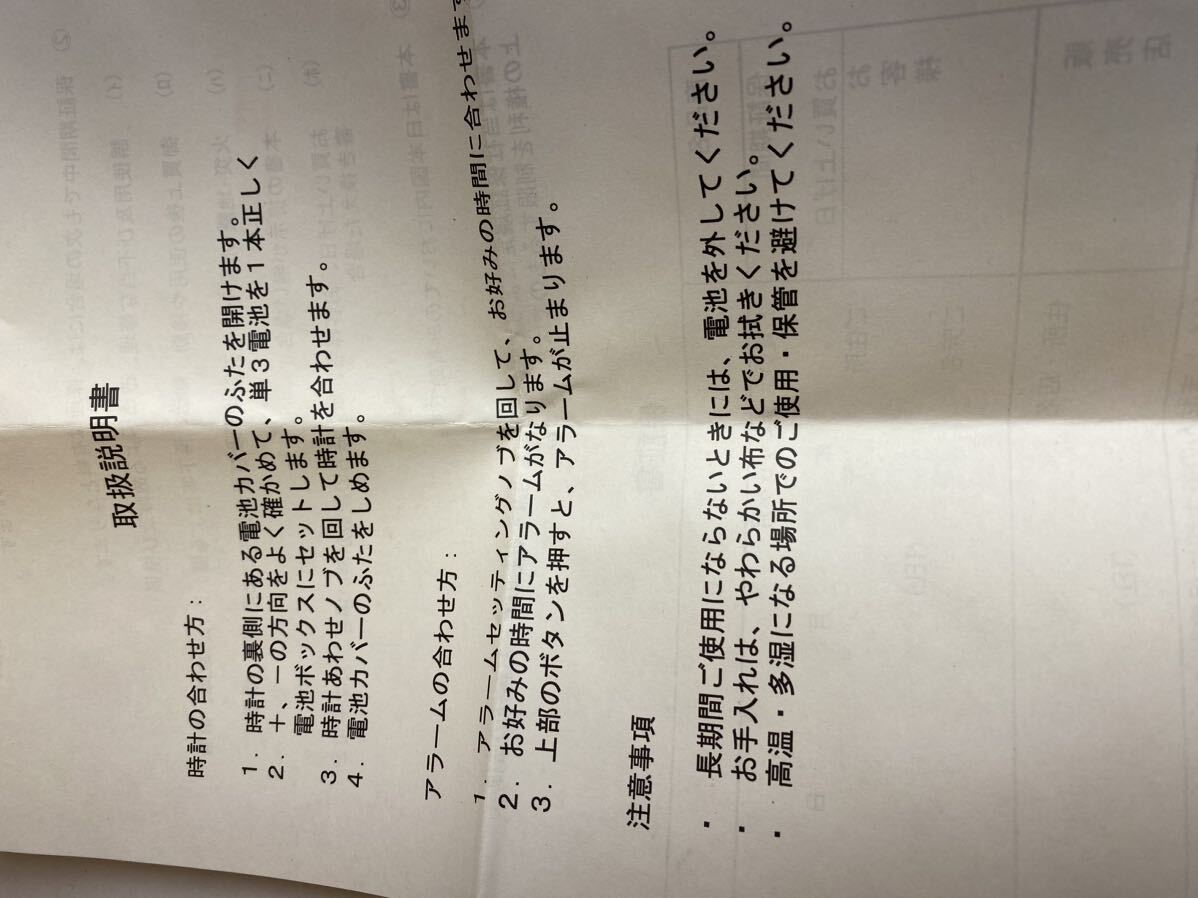 取扱説明書
時計の合わせ方：
１．時計の裏側にある電池カバーのふたを開けます。
２．＋、－の方向をよく確かめて、単３電池を１本正しく
電池ボックスにセットします。
３．時計あわせノブを回して時計を合わせます。
４．電池カバーのふたをしめます。
アラームの合わせ方：
１．アラームセッティングノブを回して、お好みの時間に合わせます
２．お好みの時間にアラームがなります。
３．上部のボタンを押すと、アラームが止まります。
注意事項
・ 長期間ご使用にならないときには、電池を外してください。
・ お手入れは、やわらかい布などでお拭きください。
・ 高温・多湿になる場所でのご使用・保管を避けてください。